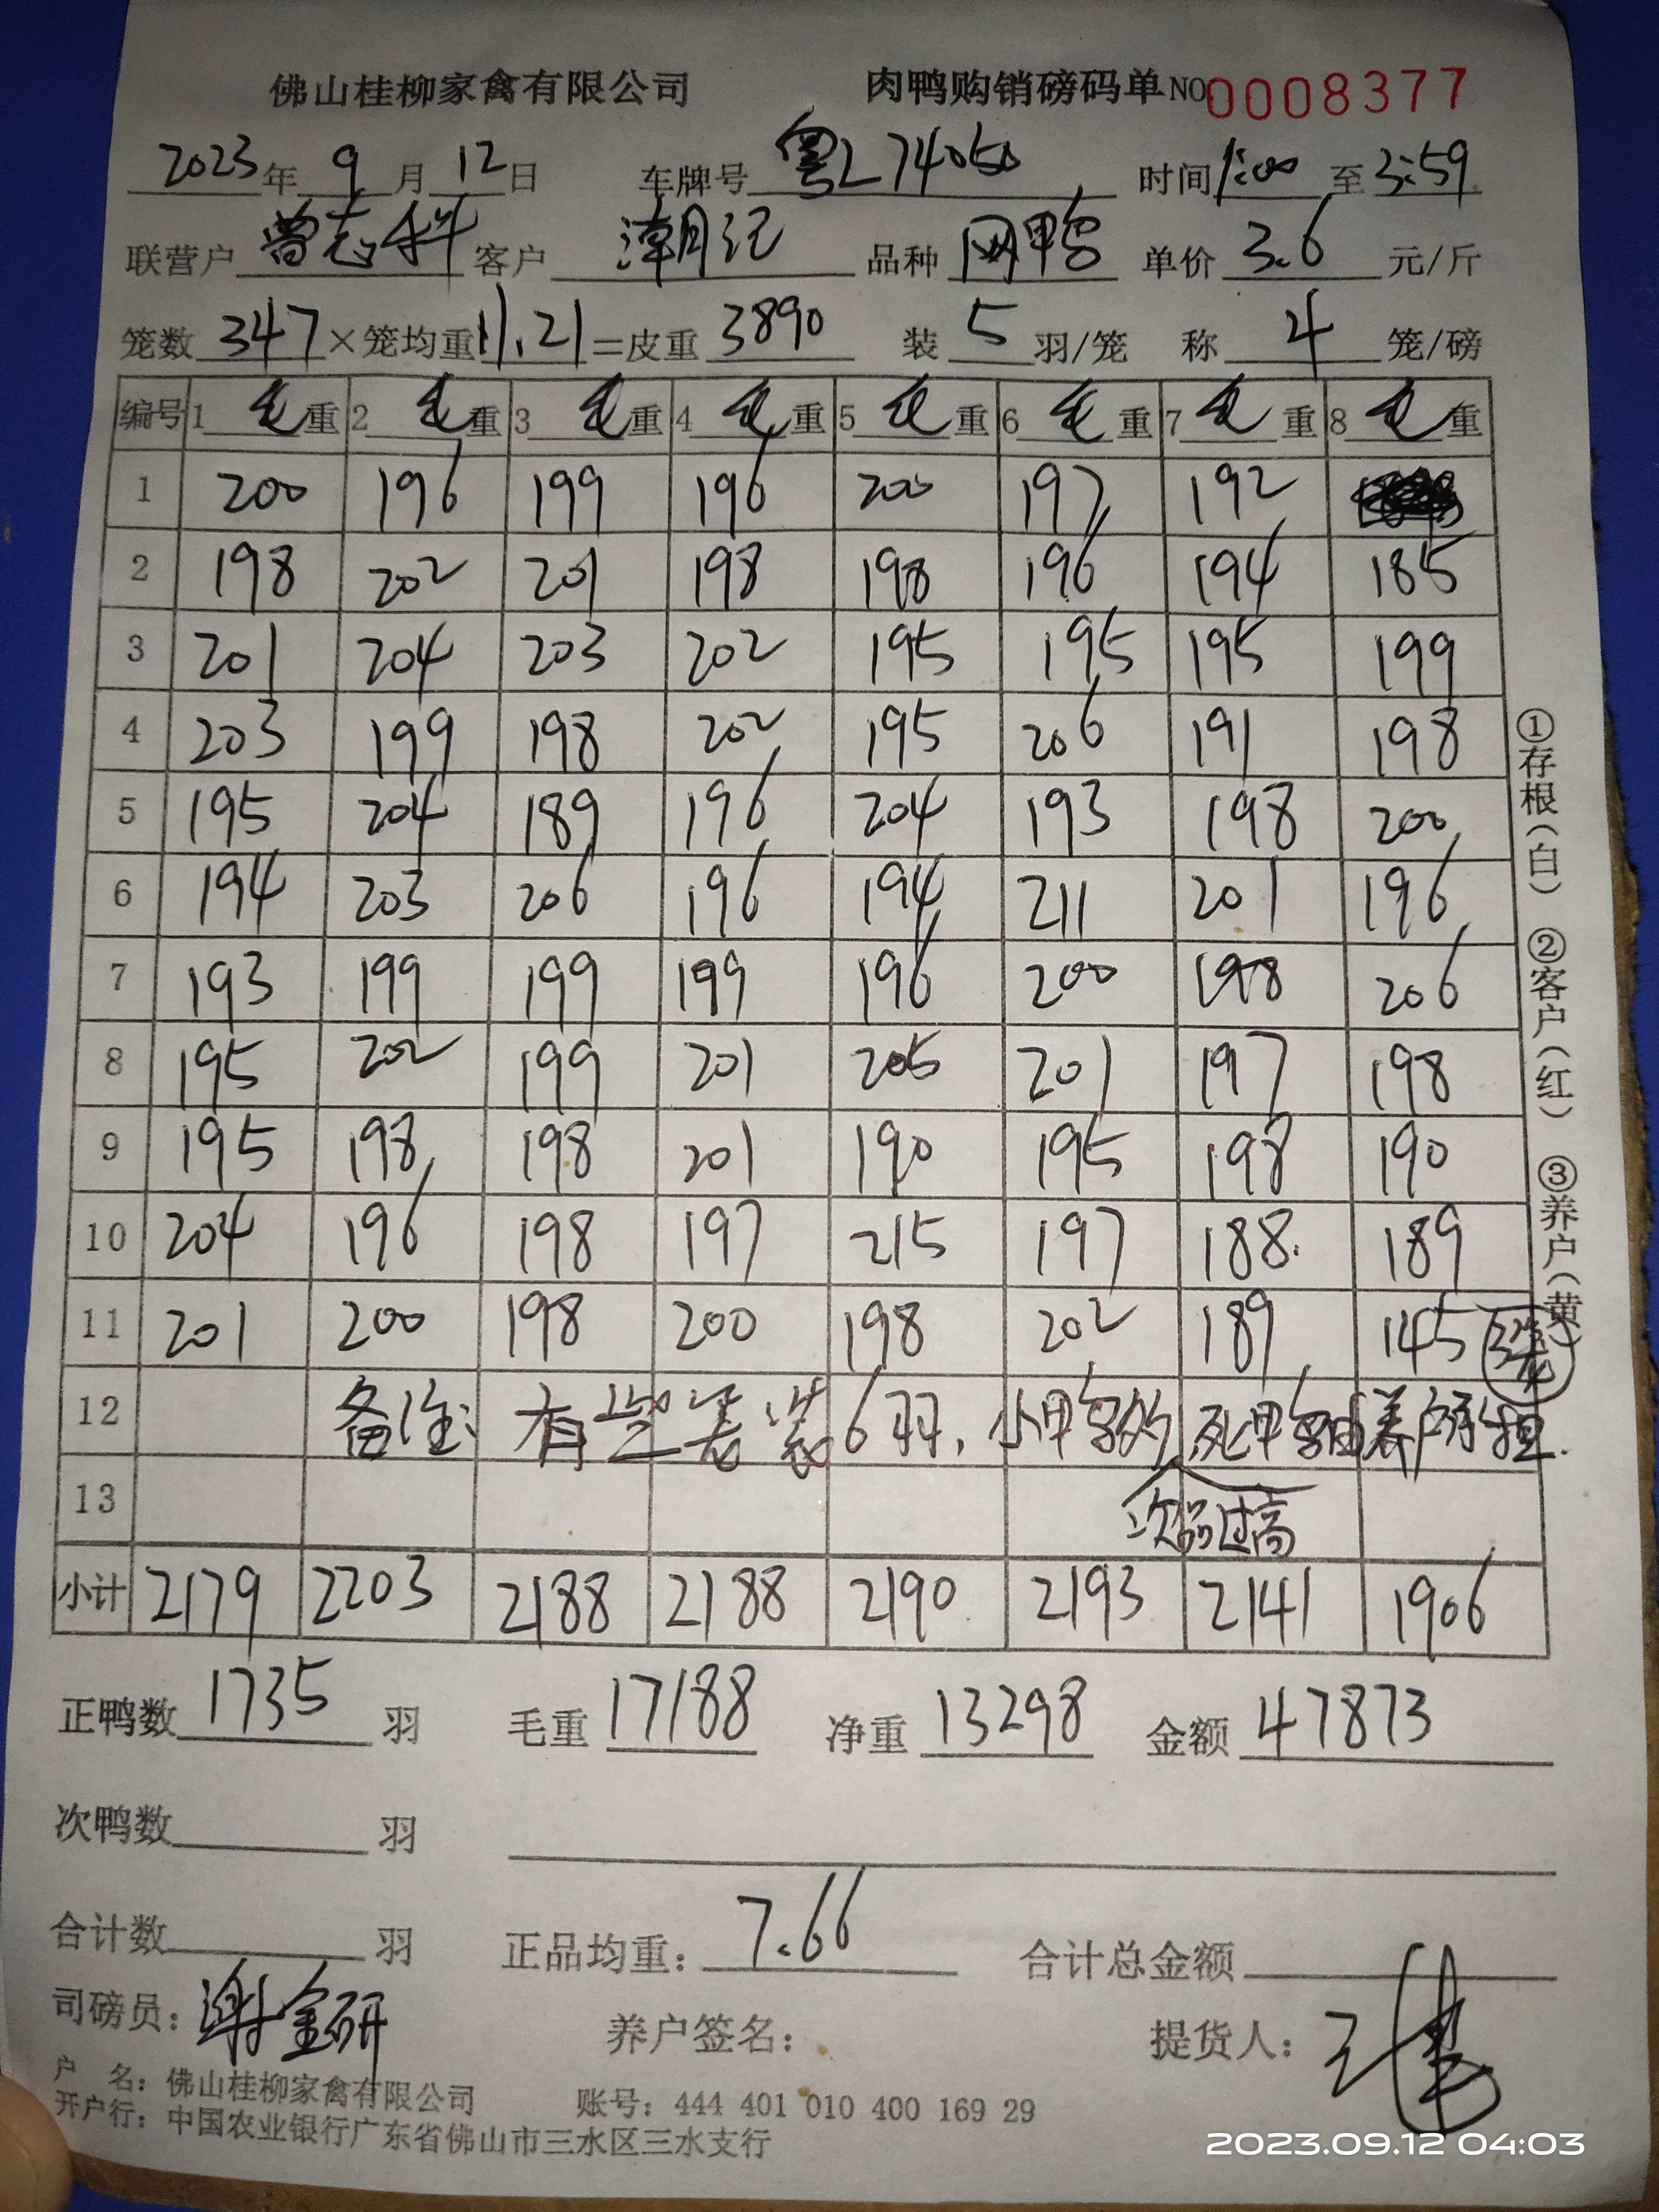 佛山桂柳家禽有限公司 肉鸭购销磅码单 NO 0008377
2023年 9月 12日 车牌号 粤L74050 时间 1:00 至 3:59
联营户 曾志科 客户 潮记 品种 网鸭 单价 3.6 元/斤
笼数 347 ×笼均重 11.21 =皮重 3890 装 5 羽/笼 称 4 笼/磅
编号 1 毛重 2 毛重 3 毛重 4 毛重 5 毛重 6 毛重 7 毛重 8 毛重
1 200 196 199 196 200 197 192
2 198 202 201 198 198 196 194 185
3 201 204 203 202 195 195 195 199
4 203 199 198 202 195 206 191 198
5 195 204 189 196 204 193 198 200
6 194 203 206 196 194 211 201 196
7 193 199 199 199 196 200 198 206
8 195 202 199 201 205 201 197 198
9 195 198 198 201 190 195 198 190
10 204 196 198 197 215 197 188 189
11 201 200 198 200 198 202 189 145 3笼
12 备注: 有些笼装6羽, 小鸭多, 死鸭由养户承担.
13 次品过高
小计 2179 2203 2188 2188 2190 2193 2141 1906
正鸭数 1735 羽 毛重 17188 净重 13298 金额 47873
次鸭数 羽
合计数 羽 正品均重: 7.66 合计总金额
司磅员: 谢金研 养户签名: 提货人:
户 名: 佛山桂柳家禽有限公司 账号: 444 401 010 400 169 29
开户行: 中国农业银行广东省佛山市三水区三水支行
①存根(白) ②客户(红) ③养户(黄)
2023.09.12 04:03